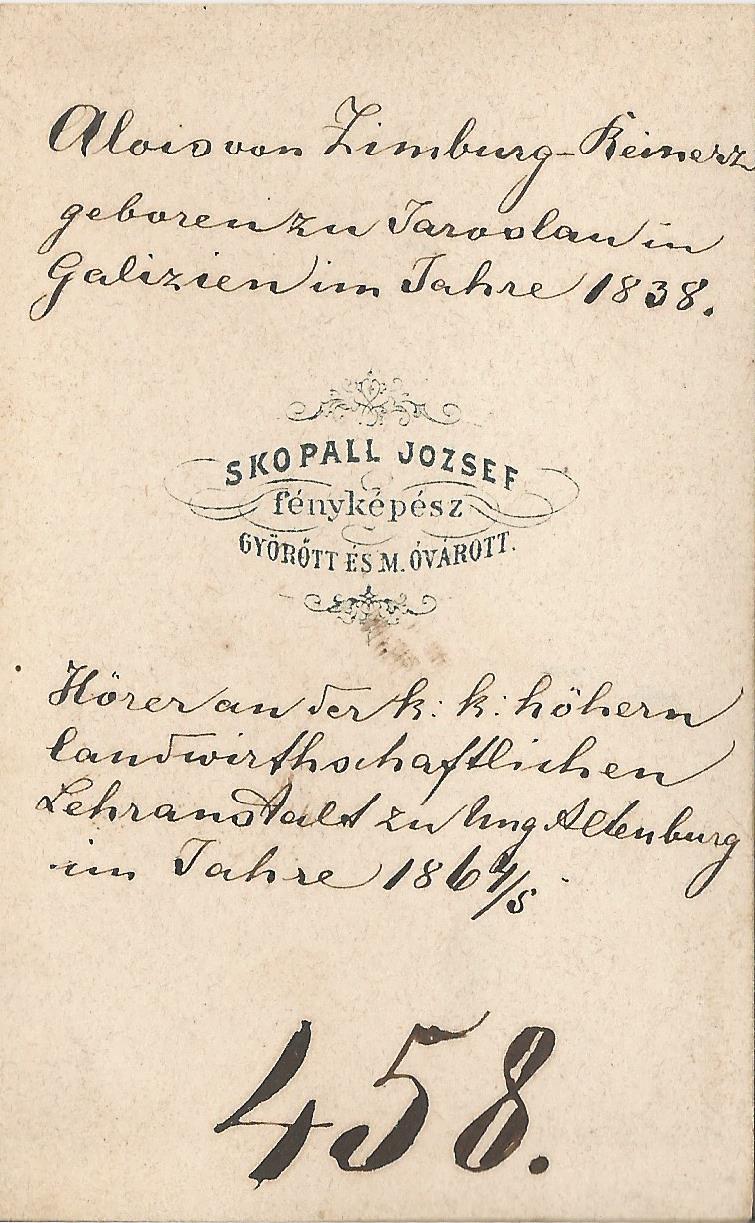 Alois von Zimburg-Reinerz
geboren zu Jaroslau in
Galizien im Jahre 1838.
SKOPALL JOZSEF
fényképész
GYŐRŐTT ÉS M. ÓVÁROTT.
Hörer an der k: k: höhern
landwirthschaftlichen
Lehranstalt zu Ung Altenburg
im Jahre 1864/5
458.